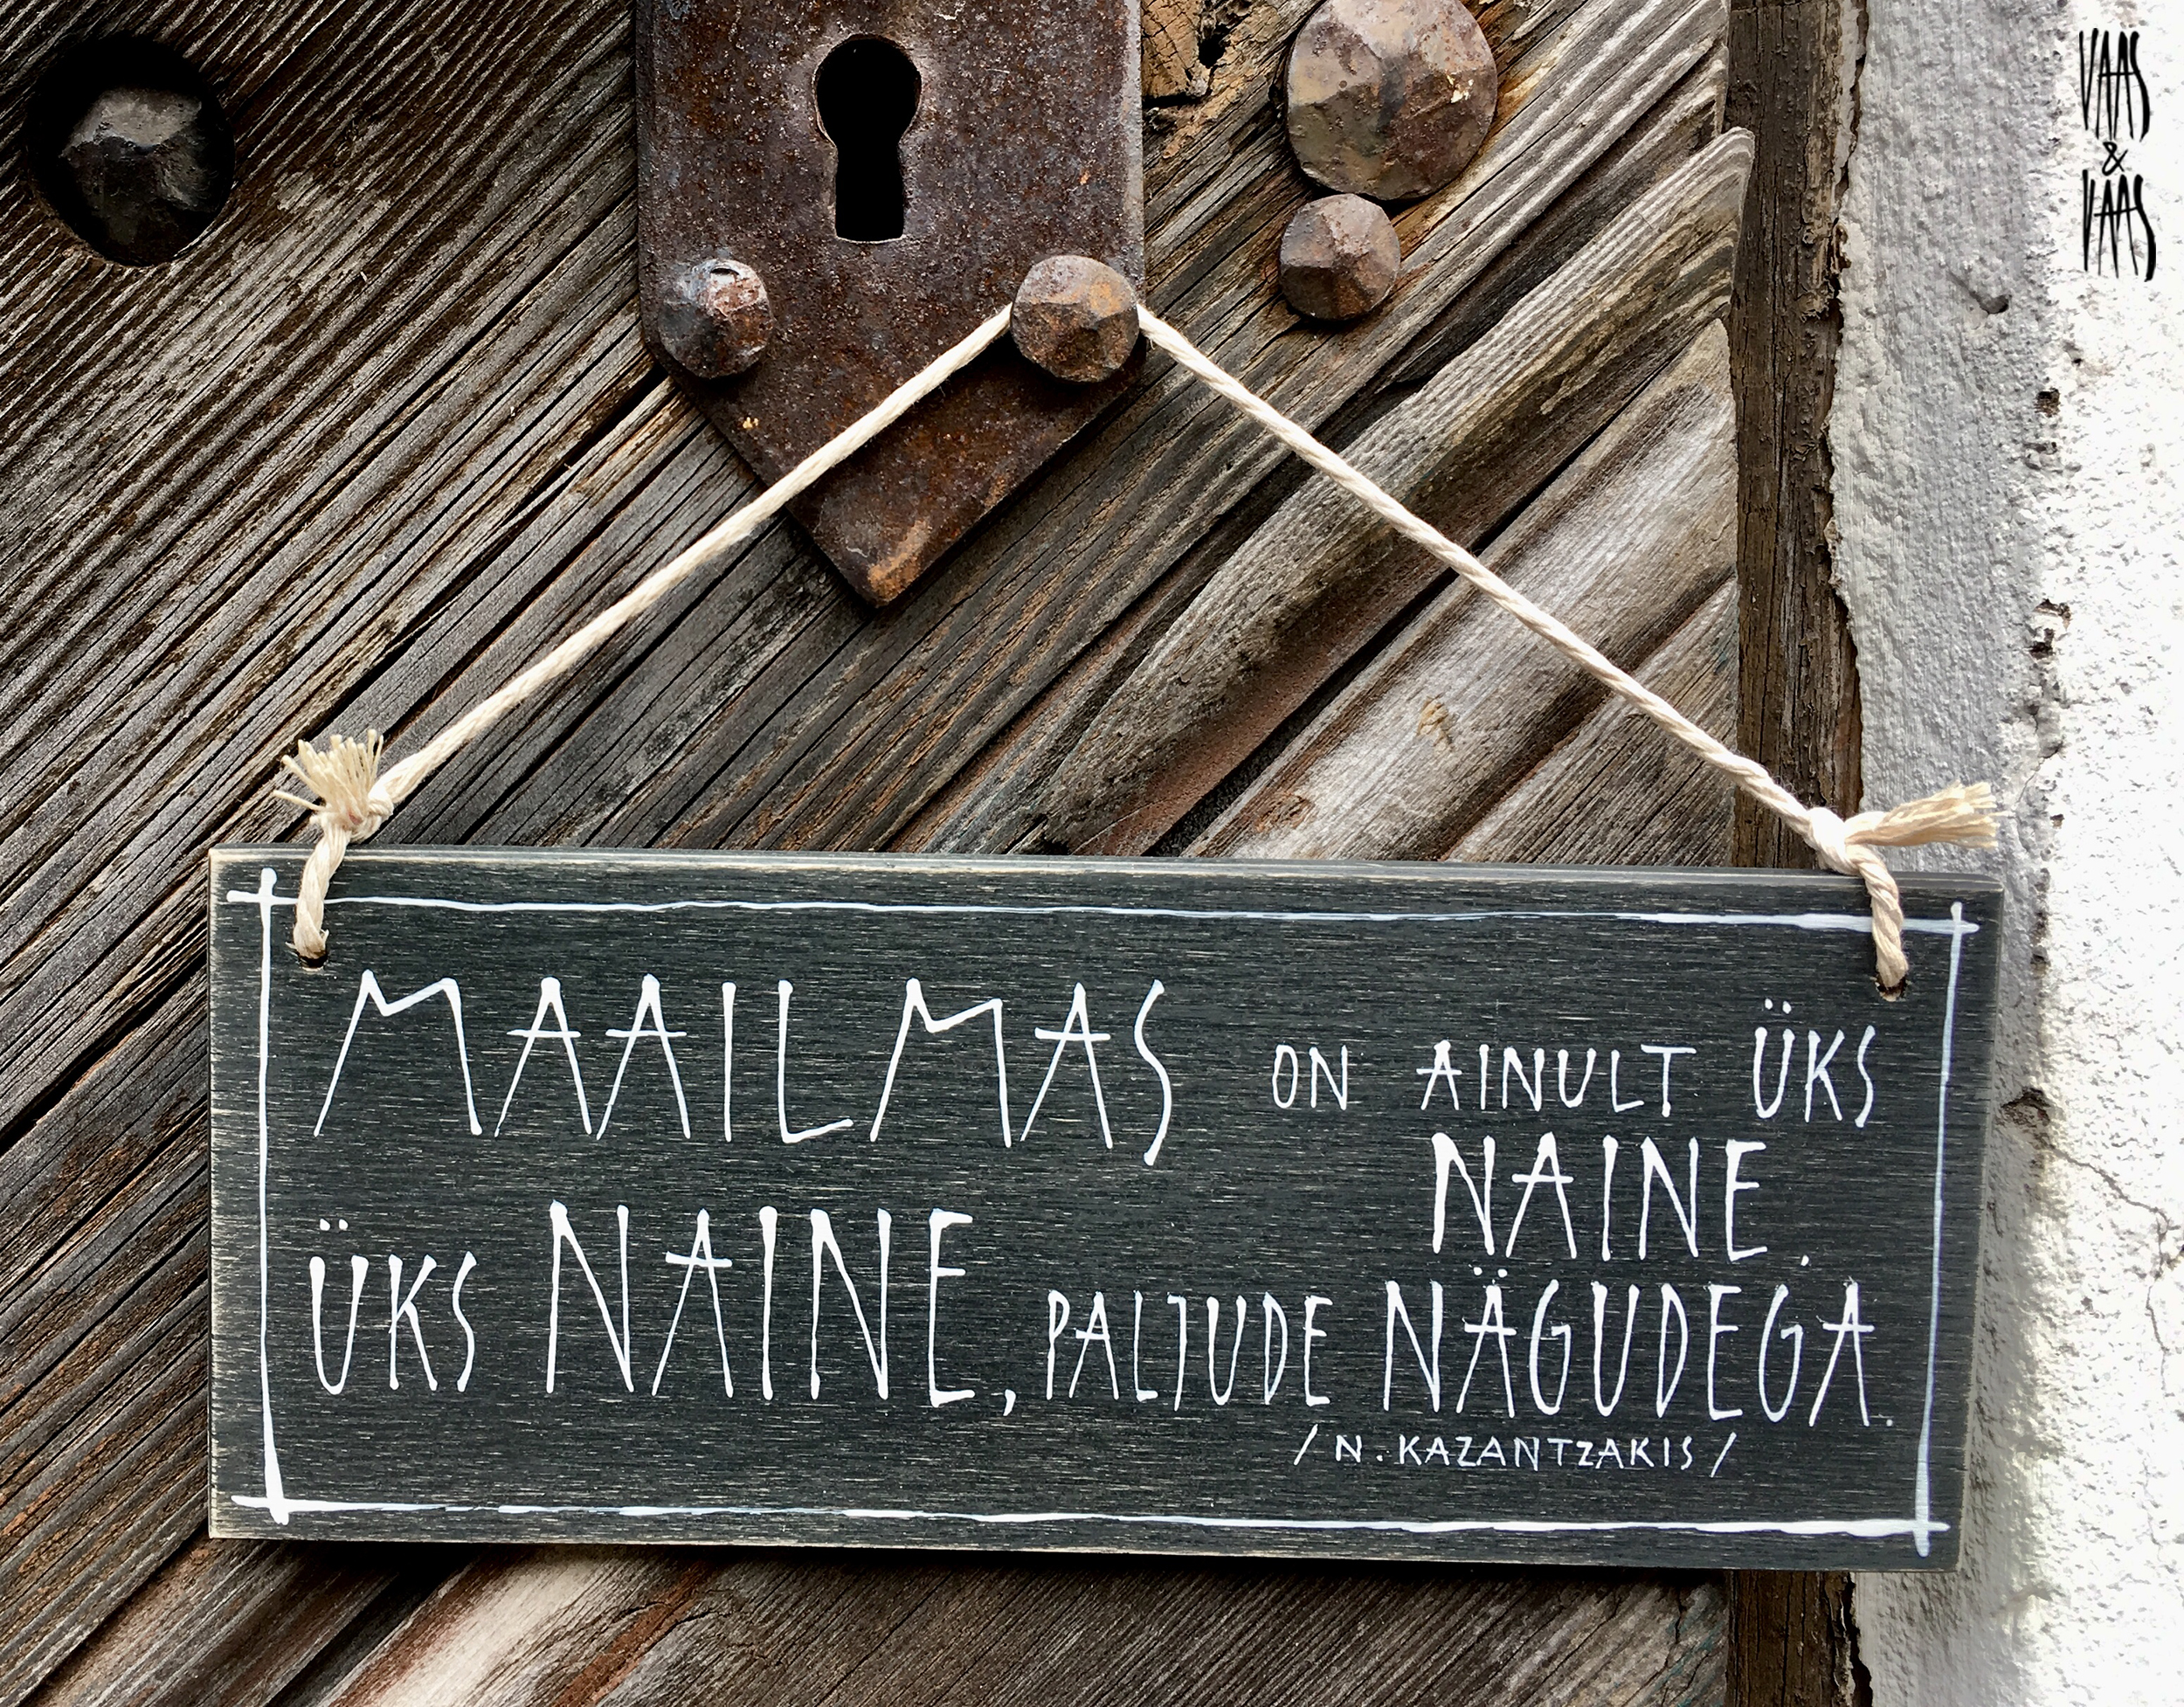 VAAS
&
VAAS
MAAILMAS ON AINULT ÜKS
NAINE.
ÜKS NAINE, PALJUDE NÄGUDEGA.
/N. KAZANTZAKIS/